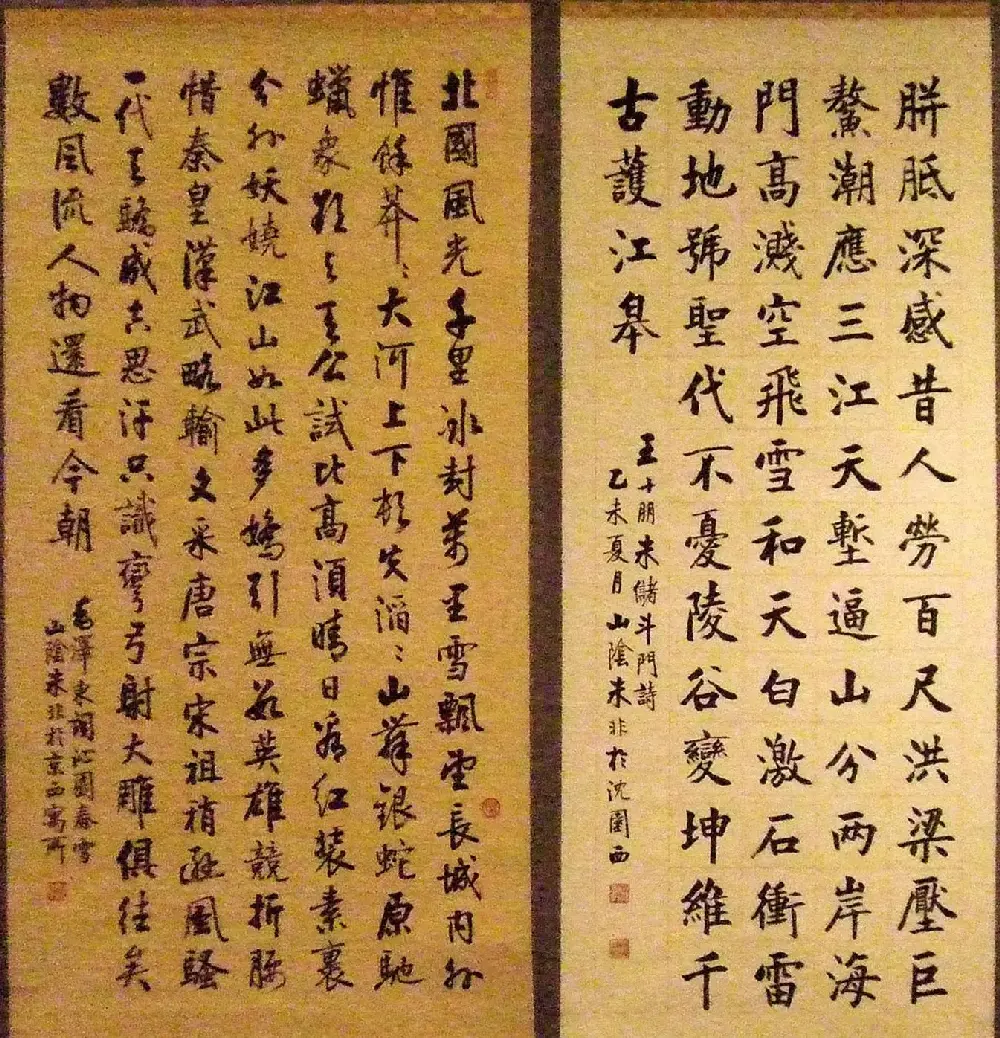 胼胝深感昔人勞百尺洪梁壓巨
鰲潮應三江天塹逼山分兩岸海
門高濺空飛雪和天白激石衝雷
動地號聖代不憂陵谷變坤維千
古護江皋
王十朋朱儲斗門詩
乙未夏月山陰朱非於沈園西
北國風光千里冰封萬里雪飄望長城內外
惟餘莽々大河上下頓失滔々山舞銀蛇原馳
蠟象欲与天公試比高須晴日看紅裝素裹
分外妖嬈江山如此多嬌引無數英雄競折腰
惜秦皇漢武略輸文采唐宗宋祖稍遜風騷
一代天驕成吉思汗只識彎弓射大雕俱往矣
數風流人物還看今朝
毛澤東詞沁園春雪
山陰朱非於京西寓所